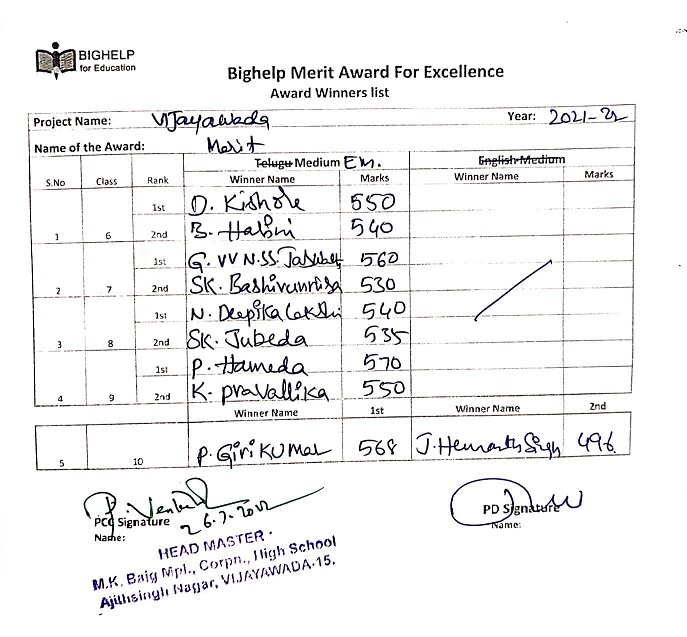 BIGHELP
for Education
Bighelp Merit Award For Excellence
Award Winners list
Project Name: Vijayawada Year: 2021-22
Name of the Award: Merit
Telugu Medium E.M. English Medium
S.No Class Rank Winner Name Marks Winner Name Marks
1st D. Kishore 550
1 6 2nd B. Halini 540
1st G. VV N.SS. 560
2 7 2nd SK. 530
1st N. Deepika 540
3 8 2nd SK. Jubeda 535
1st P. Hameda 570
4 9 2nd K. Pravallika 550
Winner Name 1st Winner Name 2nd
5 10 P. Giri Kumar 568 J. Hemanth Singh 496
PCC Signature
26.7.2022
Name:
PD Signature
Name:
HEAD MASTER.
M.K. Baig Mpl., Corpn., High School
Ajithsingh Nagar, VIJAYAWADA-15.